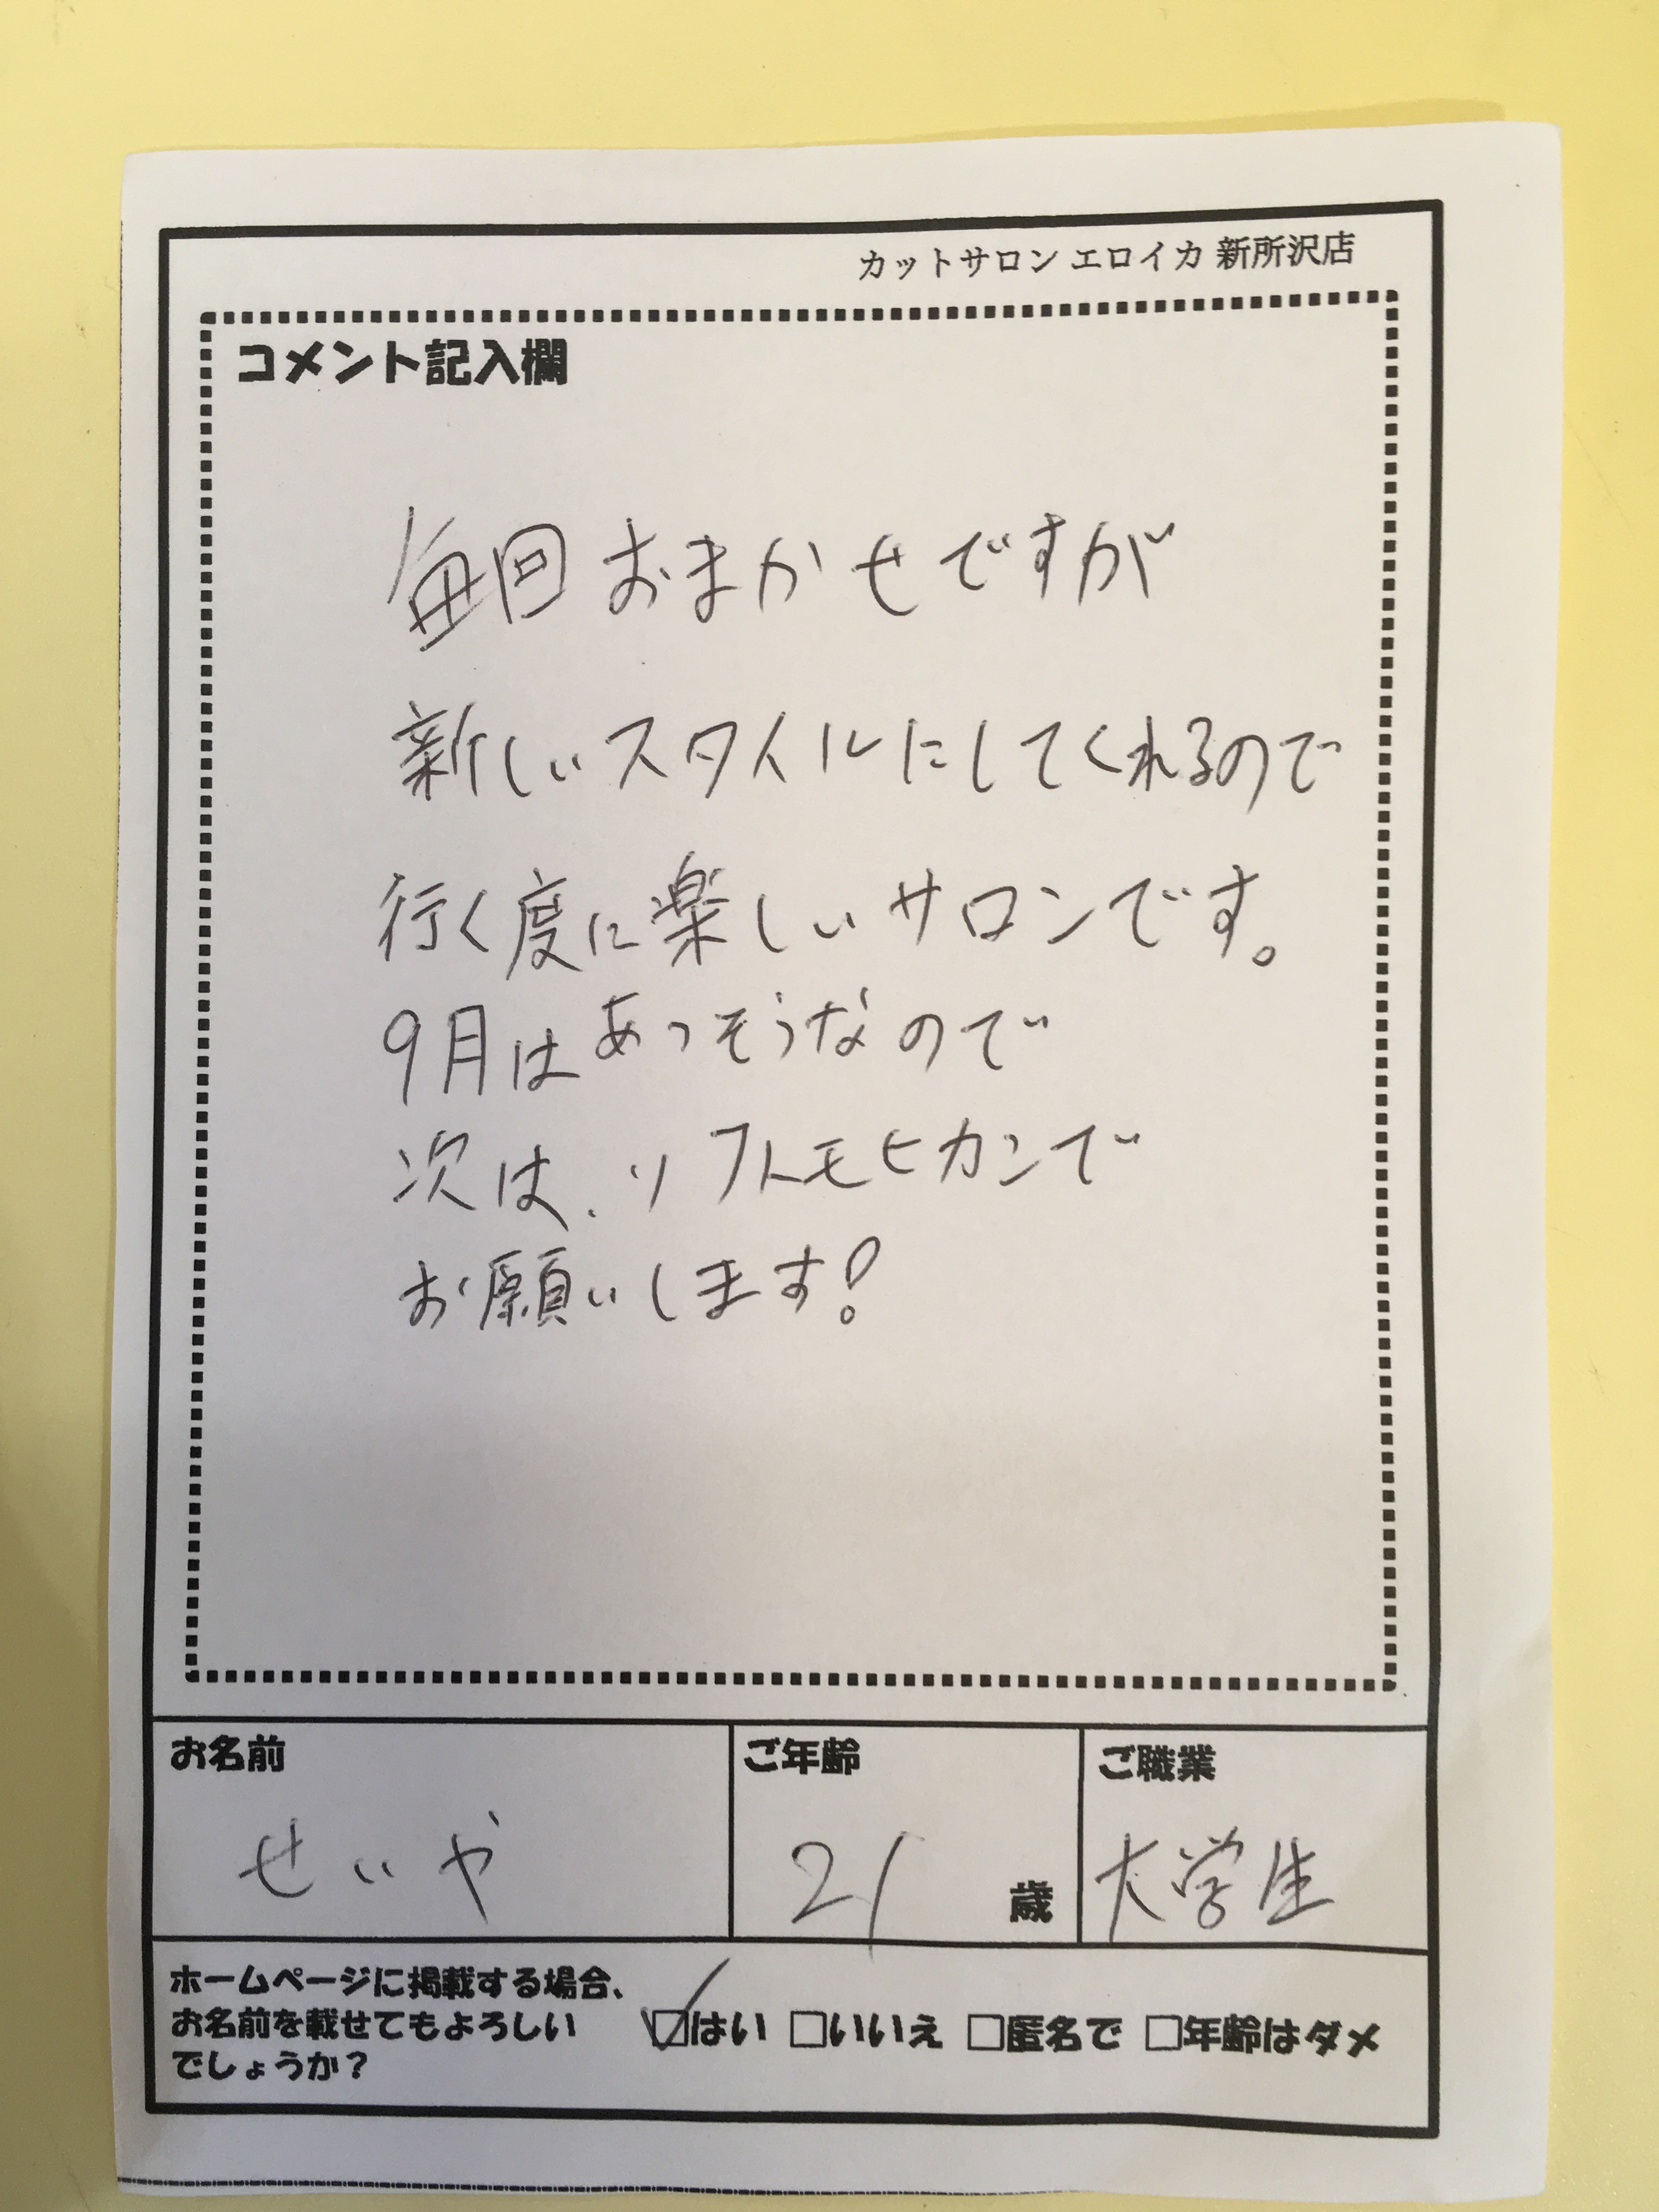 カットサロン エロイカ 新所沢店
コメント記入欄
毎回おまかせですが
新しいスタイルにしてくれるので
行く度に楽しいサロンです。
9月はあつそうなので
次は、ソフトモヒカンで
お願いします!
お名前
せいや
ご年齢
21 歳
ご職業
大学生
ホームページに掲載する場合、
お名前を載せてもよろしい
でしょうか?
☑はい □いいえ □匿名で □年齢はダメ